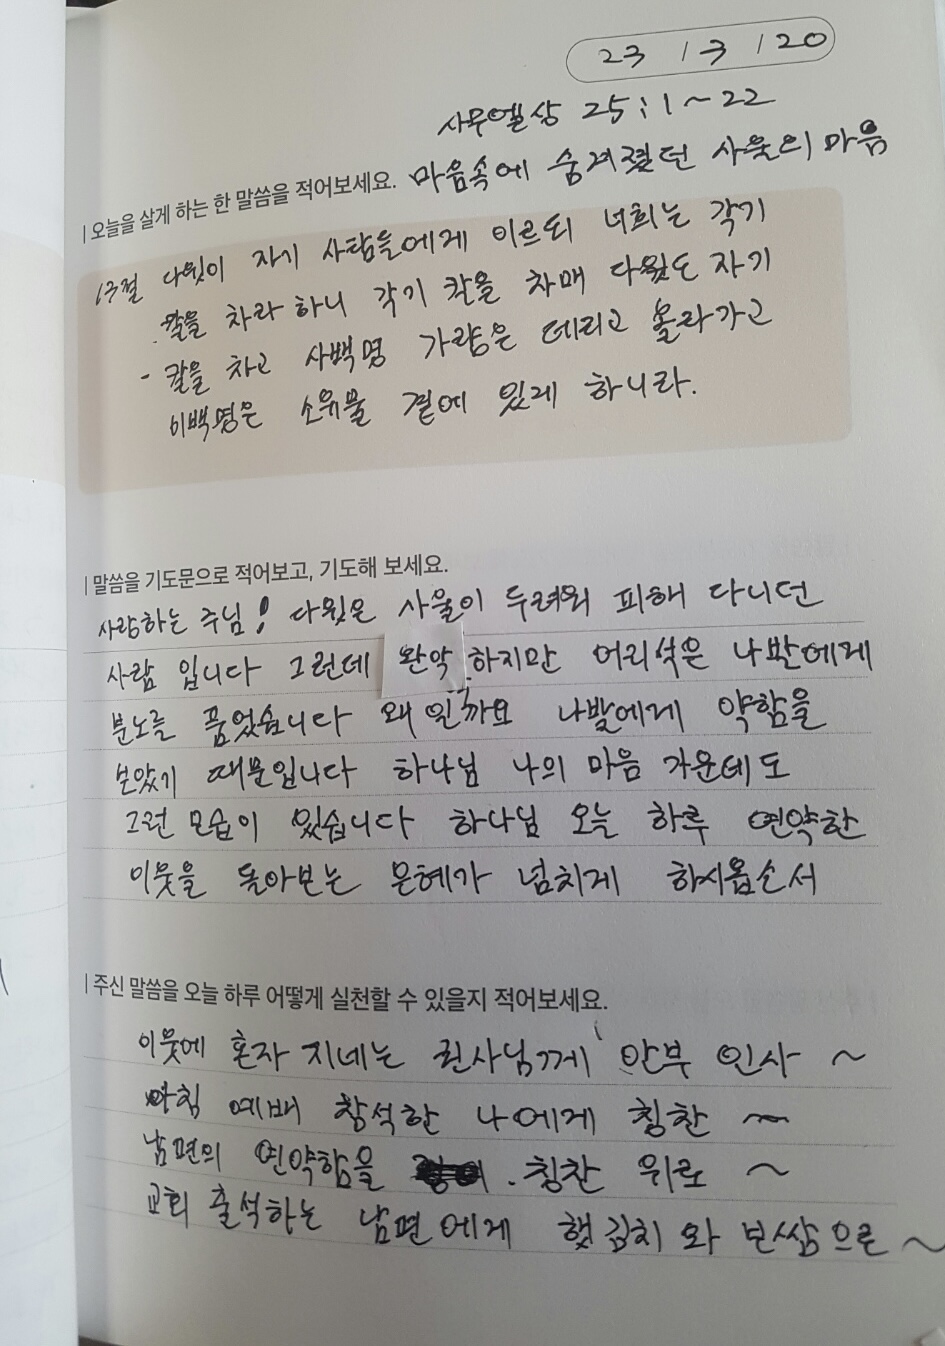 23 / 3 / 20
사무엘상 25:1~22
| 오늘을 살게 하는 한 말씀을 적어보세요. 마음속에 숨겨졌던 사울의 마음
13절 다윗이 자기 사람들에게 이르되 너희는 각기
칼을 차라 하니 각기 칼을 차매 다윗도 자기
- 칼을 차고 사백명 가량은 데리고 올라가고
이백명은 소유물 곁에 있게 하니라.
| 말씀을 기도문으로 적어보고, 기도해 보세요.
사랑하는 주님! 다윗은 사울이 두려워 피해 다니던
사람 입니다 그런데 완악하지만 어리석은 나발에게
분노를 품었습니다 왜 일까요 나발에게 약함을
보았기 때문입니다 하나님 나의 마음 가운데도
그런 모습이 있습니다 하나님 오늘 하루 연약한
이웃을 돌아보는 은혜가 넘치게 하시옵소서
| 주신 말씀을 오늘 하루 어떻게 실천할 수 있을지 적어보세요.
이웃에 혼자 지네는 권사님께 안부 인사 ~
아침 예배 참석한 나에게 칭찬 ~
남편의 연약함을 . 칭찬 위로 ~
교회 출석하는 남편에게 햇김치와 보쌈으로 ~